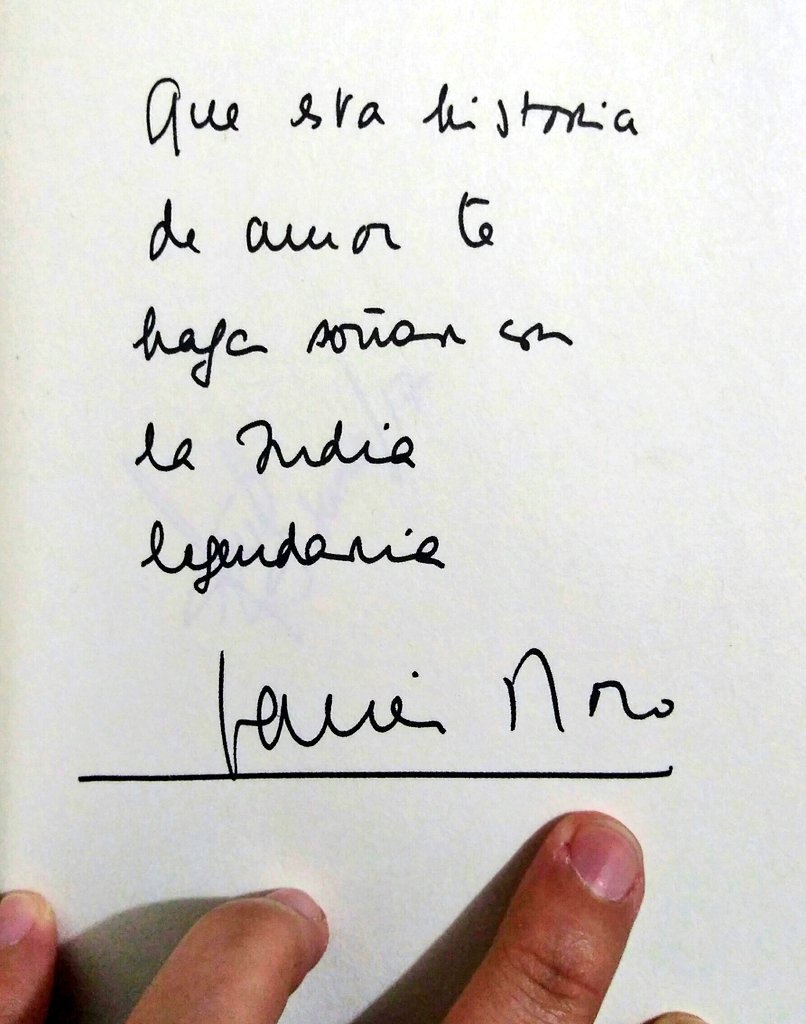 Que esta historia
de amor te
haga soñar con
la India
legendaria
Javier Moro